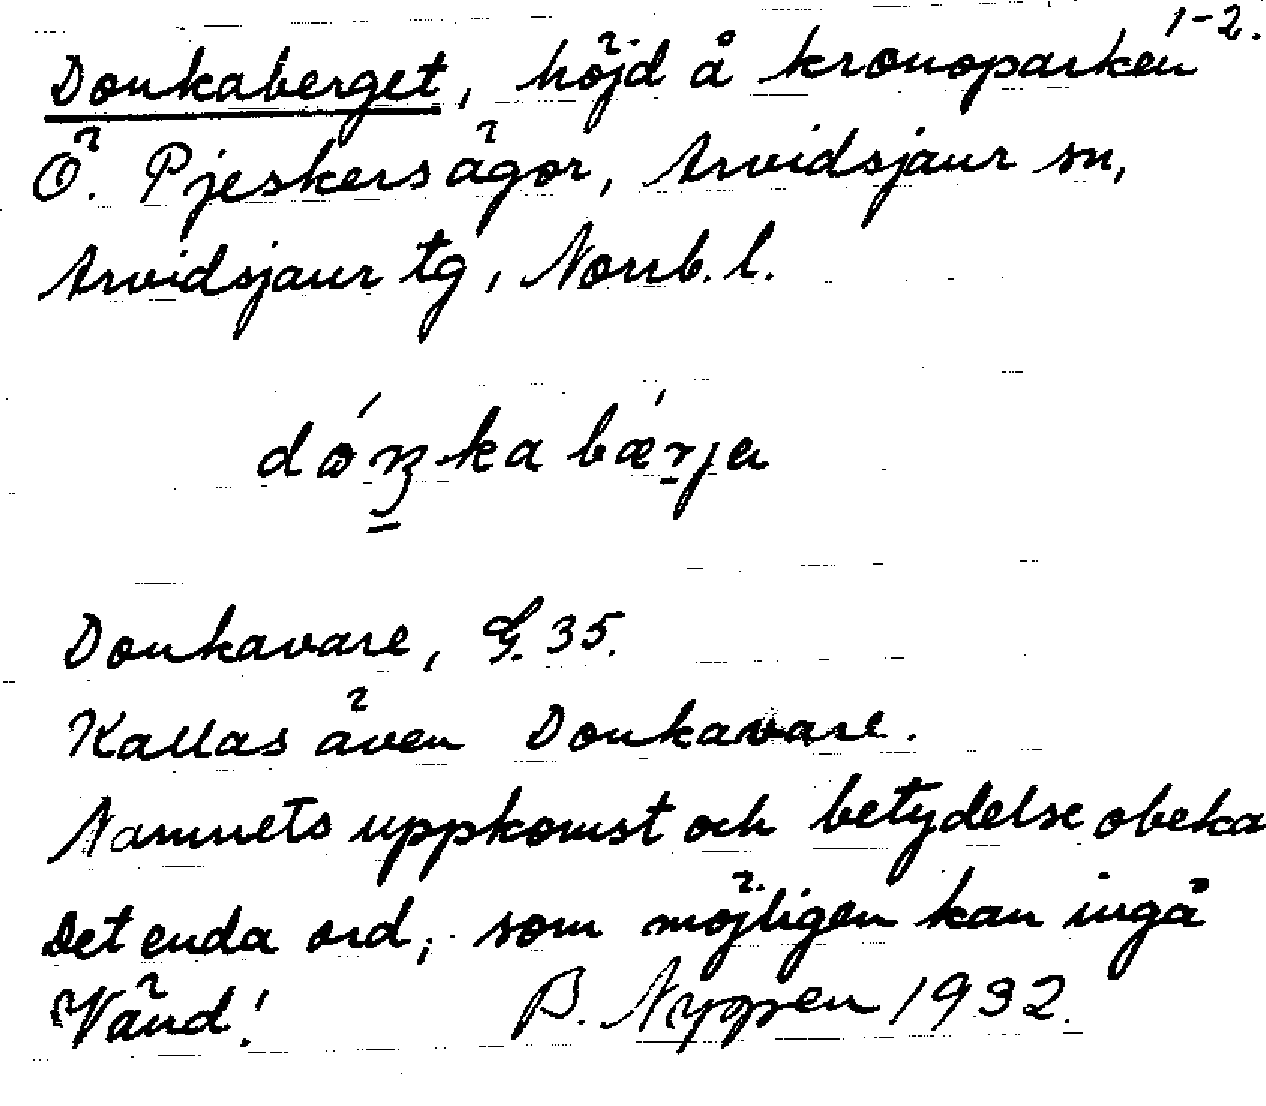 1-2.
Donkaberget, höjd å kronoparken
Ö. Pjeskersägor, Arvidsjaur sn,
Arvidsjaur tg, Norrb. l.
Donkavare, G. 35.
Kallas även Donkavare.
Namnets uppkomst och betydelse obeka
Det enda ord, som möjligen kan ingå
Vänd! B. Nyppen 1932.